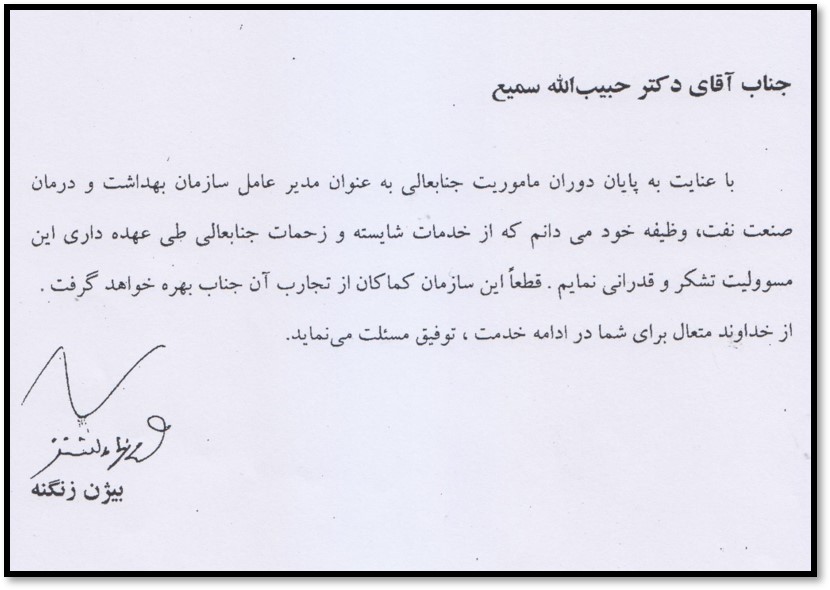 جناب آقای دکتر حبیب‌الله سمیع
با عنایت به پایان دوران ماموریت جنابعالی به عنوان مدیر عامل سازمان بهداشت و درمان
صنعت نفت، وظیفه خود می دانم که از خدمات شایسته و زحمات جنابعالی طی عهده داری این
مسوولیت تشکر و قدرانی نمایم . قطعاً این سازمان کماکان از تجارب آن جناب بهره خواهد گرفت .
از خداوند متعال برای شما در ادامه خدمت ، توفیق مسئلت می‌نماید.
بیژن زنگنه